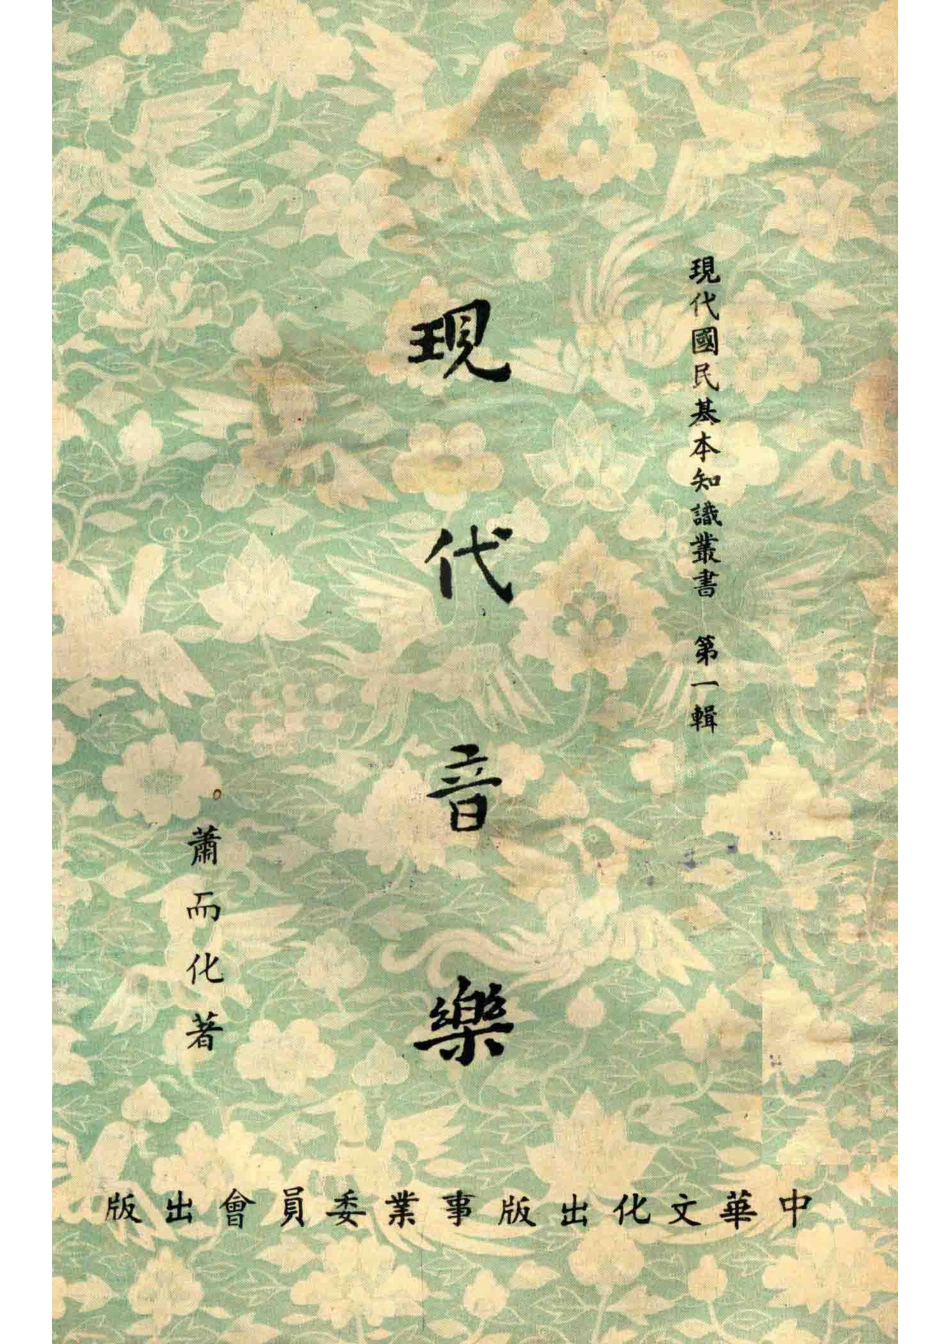 現代國民基本知識叢書 第一輯
現代音樂
蕭而化著
中華文化出版事業委員會出版